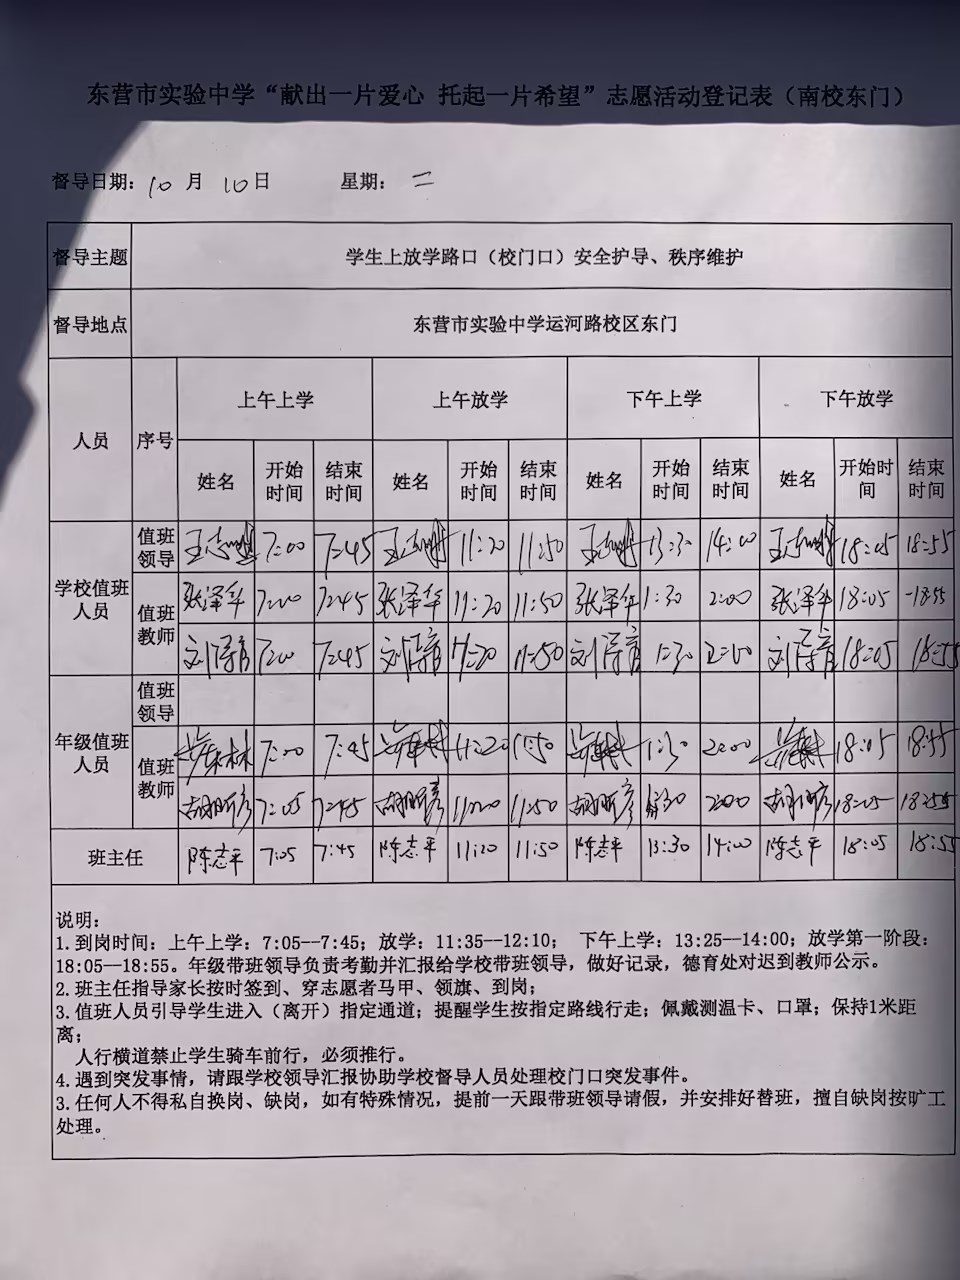 东营市实验中学“献出一片爱心 托起一片希望”志愿活动登记表（南校东门）
督导日期：10 月 10日 星期：二
督导主题 学生上放学路口（校门口）安全护导、秩序维护
督导地点 东营市实验中学运河路校区东门
人员 序号 上午上学 上午放学 下午上学 下午放学
姓名 开始时间 结束时间 姓名 开始时间 结束时间 姓名 开始时间 结束时间 姓名 开始时间 结束时间
学校值班人员 值班领导 7:00 7:45 11:20 11:50 13:30 14:00 18:05 18:55
值班教师 张泽华 7:00 7:45 张泽华 11:20 11:50 张泽华 1:30 2:00 张泽华 18:05 18:55
7:00 7:45 11:20 11:50 1:30 2:00 18:05 18:55
年级值班人员 值班领导
值班教师 7:00 7:45 11:20 11:50 1:30 2:00 18:05 18:55
7:05 7:45 11:20 11:50 2:00 18:05 18:55
班主任 陈志平 7:05 7:45 陈志平 11:20 11:50 陈志平 13:30 14:00 陈志平 18:05 18:55
说明：
1.到岗时间：上午上学：7:05--7:45；放学：11:35--12:10； 下午上学：13:25--14:00；放学第一阶段：
18:05--18:55。年级带班领导负责考勤并汇报给学校带班领导，做好记录，德育处对迟到教师公示。
2.班主任指导家长按时签到、穿志愿者马甲、领旗、到岗；
3.值班人员引导学生进入（离开）指定通道；提醒学生按指定路线行走；佩戴测温卡、口罩；保持1米距
离；
人行横道禁止学生骑车前行，必须推行。
4.遇到突发事情，请跟学校领导汇报协助学校督导人员处理校门口突发事件。
3.任何人不得私自换岗、缺岗，如有特殊情况，提前一天跟带班领导请假，并安排好替班，擅自缺岗按旷工
处理。